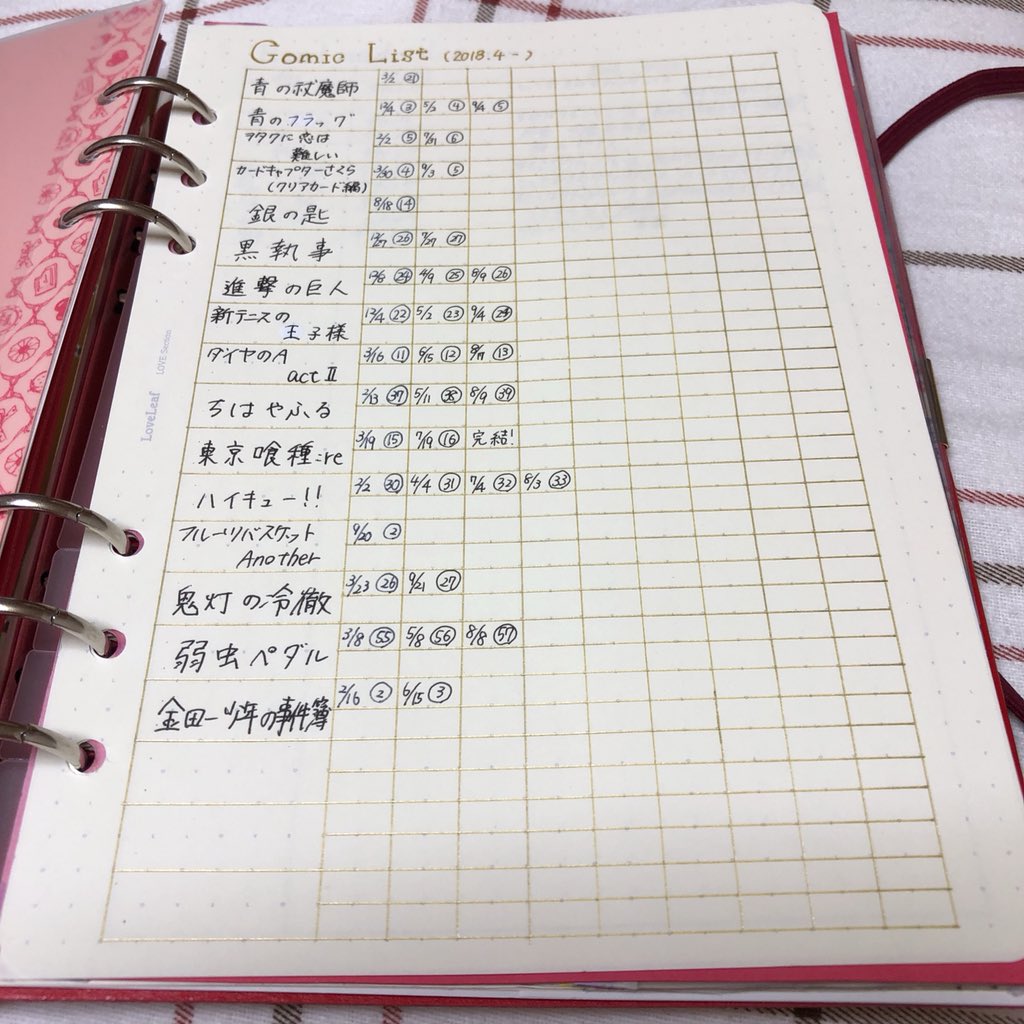 Comic List (2018.4-)
青の祓魔師 ㉑
青のフラッグ ③ 5/3 ④ 9/4 ⑤
ヲタクに恋は 2/2 ⑤ ⑥
難しい
カードキャプターさくら 3/30 ④ 9/3 ⑤
(クリアカード編)
銀の匙 8/18 ⑭
黒執事 ㉖ 7/27 ㉗
進撃の巨人 ㉔ 4/9 ㉕ 8/9 ㉖
新テニスの 12/4 ㉒ 5/2 ㉓ 9/4 ㉔
王子様
ダイヤのA 3/16 ⑪ 6/15 ⑫ ⑬
act II
ちはやふる 2/13 ㊲ 5/11 ㊳ 8/9 ㊴
東京喰種:re 3/19 ⑮ 7/19 ⑯ 完結!
ハイキュー!! 2/2 ㉚ 4/4 ㉛ 7/4 ㉜ 8/3 ㉝
フルーツバスケット 9/20 ②
Another
鬼灯の冷徹 3/23 ㉖ 9/21 ㉗
弱虫ペダル 3/8 55 5/8 56 8/8 57
金田一少年の事件簿 2/16 ② 6/15 ③
LoveLeaf LOVE Section